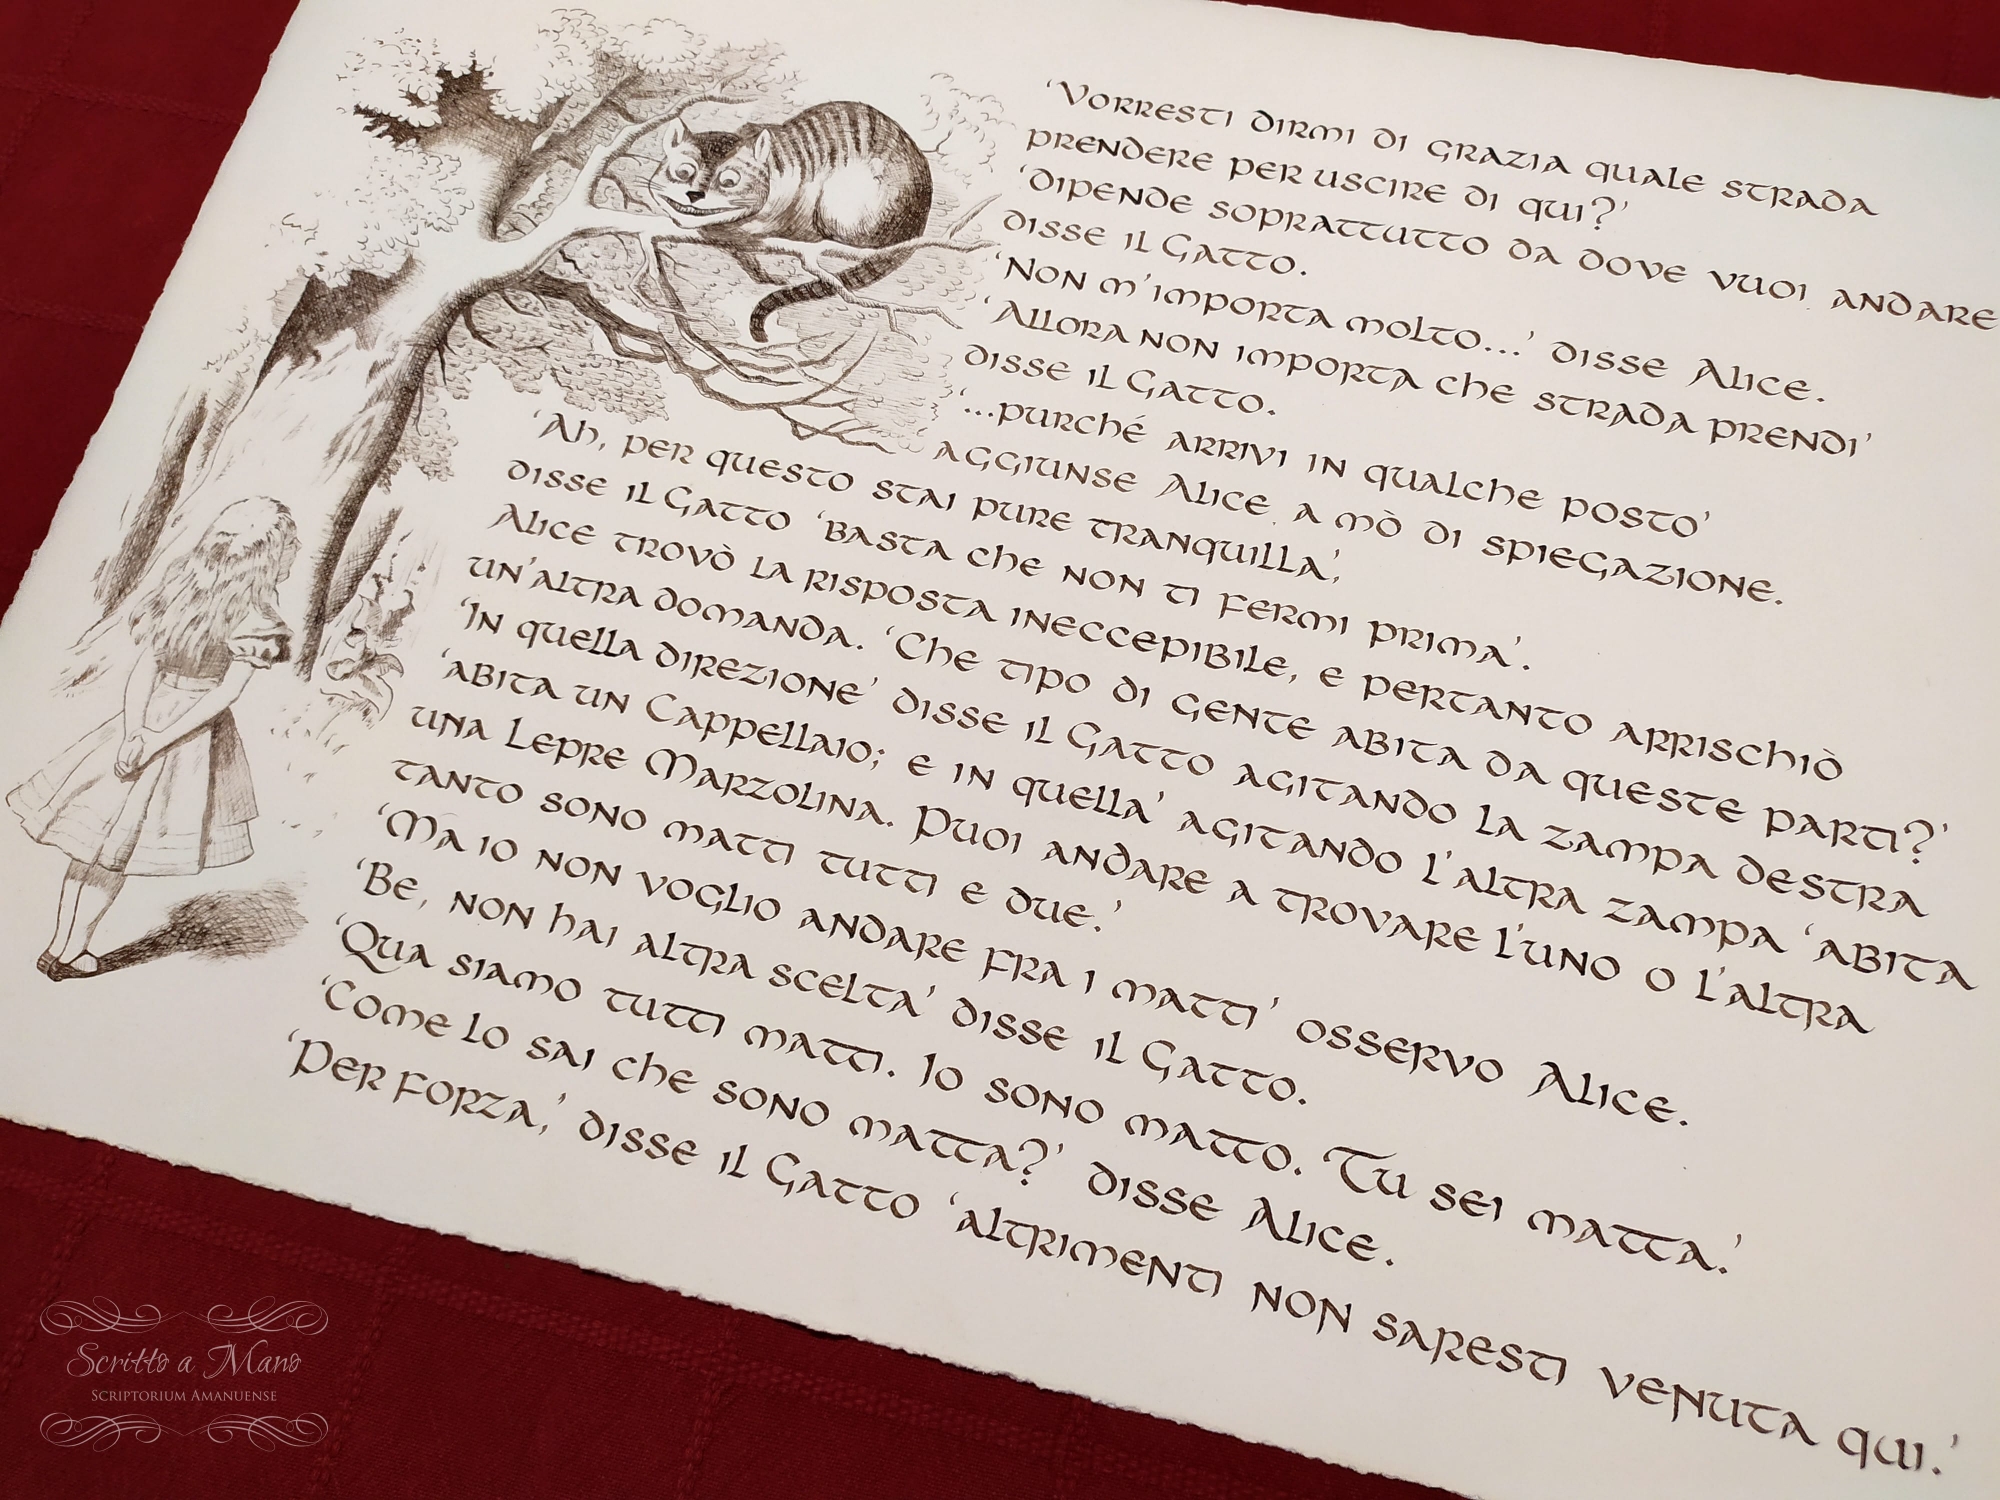 'Vorresti dirmi di grazia quale strada
prendere per uscire di qui?'
'dipende soprattutto da dove vuoi andare
disse il Gatto.
'Non m'importa molto...' disse Alice.
'Allora non importa che strada prendi'
disse il Gatto.
'...purché arrivi in qualche posto'
aggiunse Alice a mò di spiegazione.
'Ah, per questo stai pure tranquilla',
disse il Gatto 'basta che non ti fermi prima'.
Alice trovò la risposta ineccepibile, e pertanto arrischiò
un'altra domanda. 'Che tipo di gente abita da queste parti?'
'In quella direzione' disse il Gatto agitando la zampa destra
'abita un Cappellaio; e in quella' agitando l'altra zampa 'abita
una Lepre Marzolina. Puoi andare a trovare l'uno o l'altra
tanto sono matti tutti e due.'
'Ma io non voglio andare fra i matti' osservo Alice.
'Be, non hai altra scelta' disse il Gatto.
'Qua siamo tutti matti. Io sono matto. Tu sei matta.'
'Come lo sai che sono matta?' disse Alice.
'Per forza,' disse il Gatto 'altrimenti non saresti venuta qui.'
Scritto a Mano
Scriptorium Amanuense